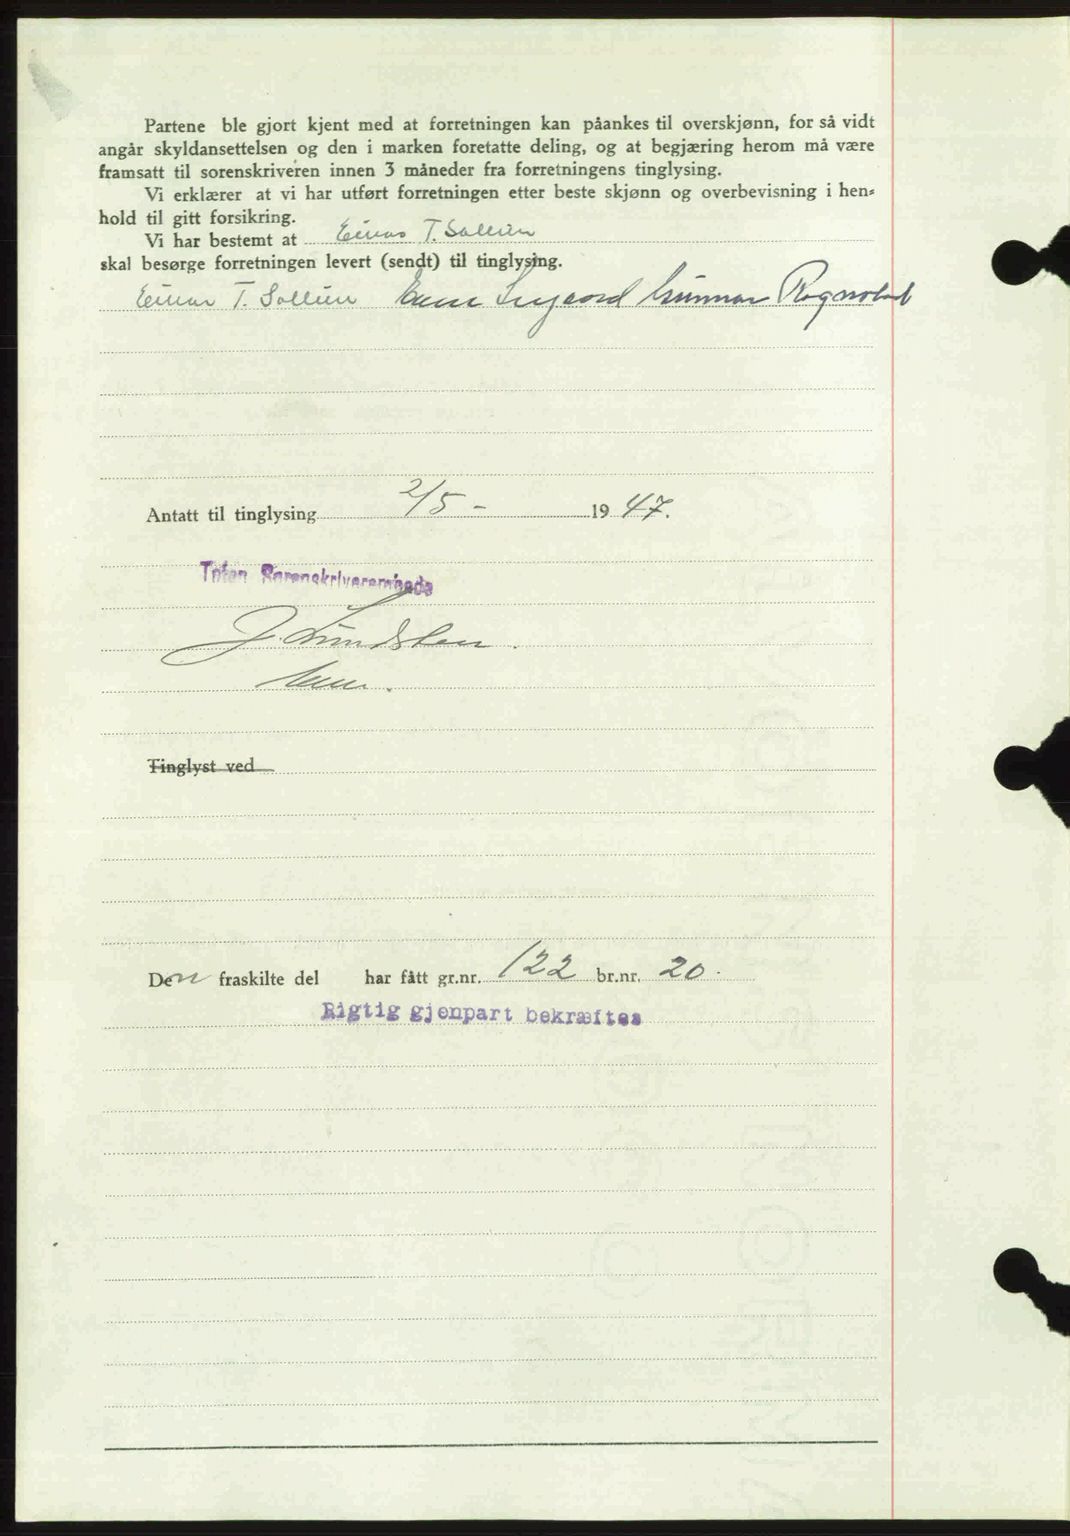 Partene ble gjort kjent med at forretningen kan påankes til overskjønn, for så vidt
angår skyldansettelsen og den i marken foretatte deling, og at begjæring herom må være
framsatt til sorenskriveren innen 3 måneder fra forretningens tinglysing.
Vi erklærer at vi har utført forretningen etter beste skjønn og overbevisning i hen-
hold til gitt forsikring.
Vi har bestemt at Einar T. Sollien
skal besørge forretningen levert (sendt) til tinglysing.
Einar T. Sollien Gunnar Rognstad
Antatt til tinglysing 2/5 - 1947.
Toten Sorenskriverembede
J. Lundsten
Tinglyst ved
Den fraskilte del har fått gr.nr. 122 br.nr. 20.
Rigtig gjenpart bekræftes